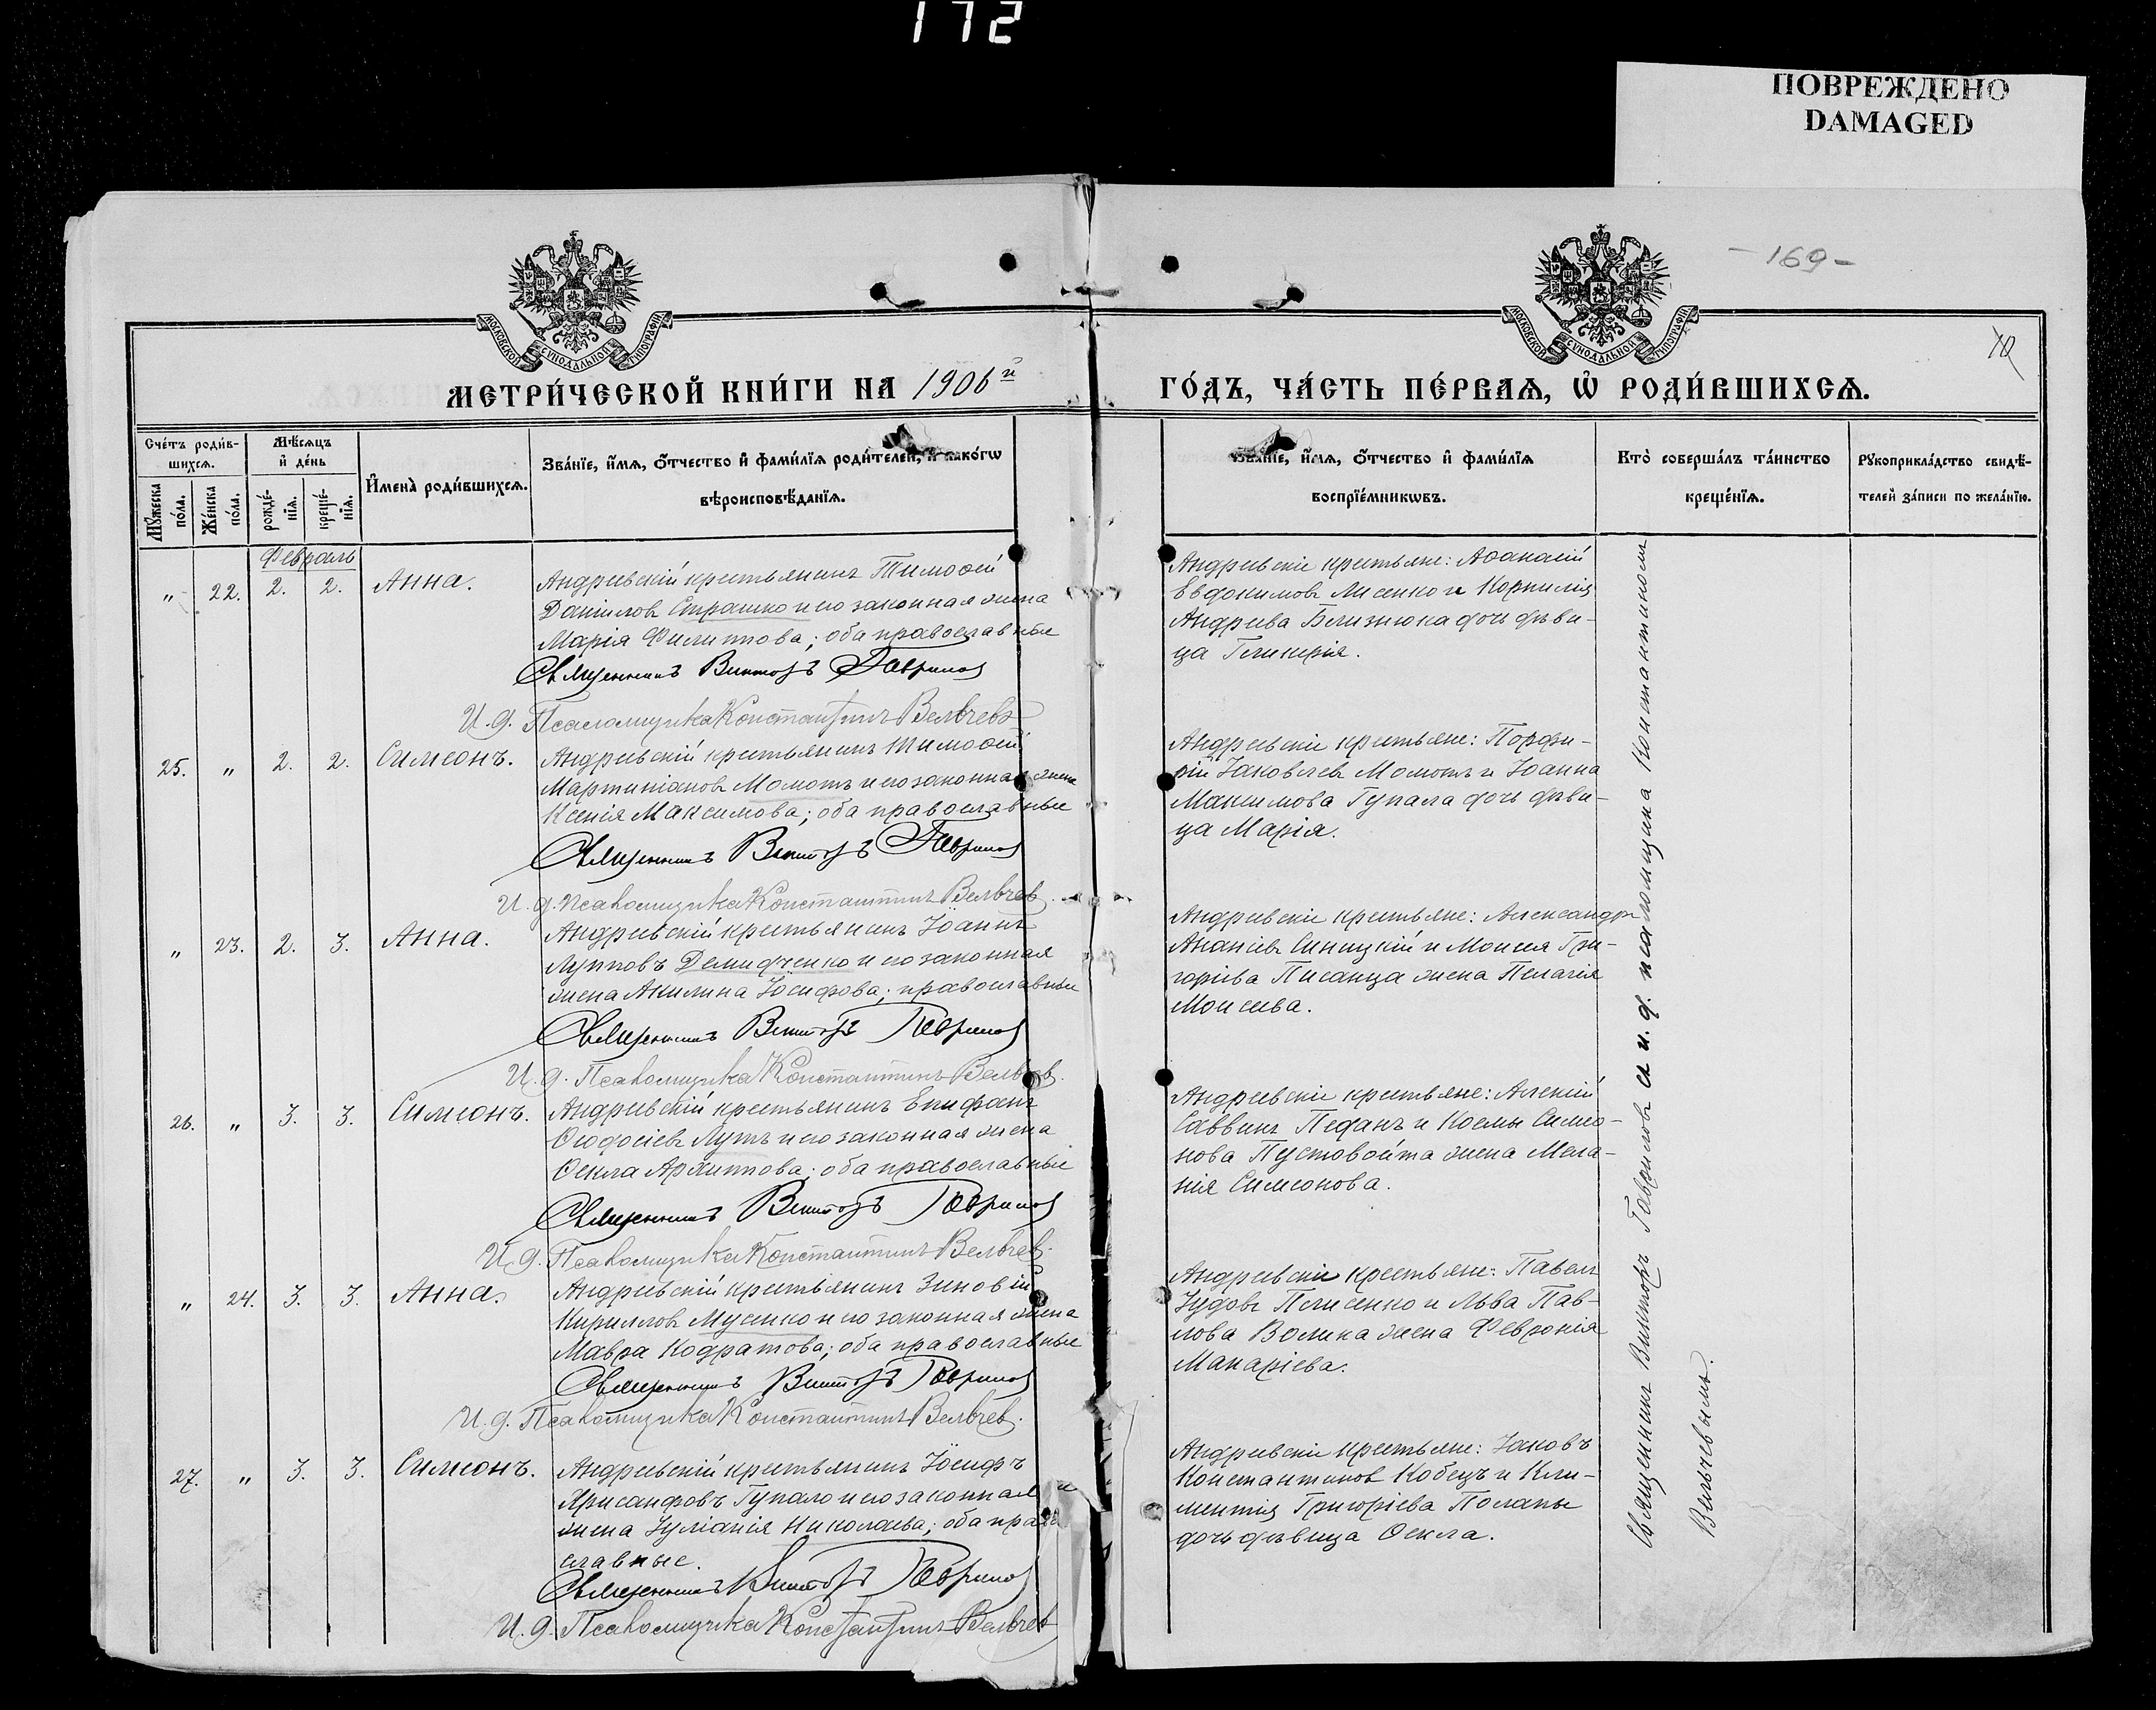 172
ПОВРЕЖДЕНО
DAMAGED
- 169 -
10
МОСКОВСКОЙ СУНОДАЛЬНОЙ ТИПОГРАФІИ
МОСКОВСКОЙ СУНОДАЛЬНОЙ ТИПОГРАФІИ
МЕТРИ́ЧЕСКОЙ КНИ́ГИ НА 1906й
ГО́ДЪ, ЧА́СТЬ ПЕ́РВАѦ, Ѡ҆ РОДИ́ВШИХСѦ.
Сче́тъ роди́в-
шихсѧ.
Мѣ́сѧцъ
и҆ де́нь
Мꙋ́жеска
по́ла.
Же́нска
по́ла.
рожде́-
нїѧ.
креще́-
нїѧ.
И҆мена̀ роди́вшихсѧ.
Зва́нїе, и҆́мѧ, ѻ҆́тчество и҆ фамѝлїѧ роди́телей, и҆ како́гѡ
вѣроисповѣ́данїѧ.
Зва́нїе, и҆́мѧ, ѻ҆́тчество и҆ фамѝлїѧ
воспрїе́мникѡвъ.
Кто̀ соверша́лъ та́инство
креще́нїѧ.
Рꙋкоприкла́дство свидѣ́-
телей за́писи по жела́нїю.
Февраль
" 22. 2. 2. Анна.
Андреевскій крестьянинъ Тимоѳей
Даніиловъ Страшко и его законная жена
Марія Филиппова; оба православные
Священникъ Викторъ Гавриловъ
И. д. Псаломщика Константинъ Вельчевъ
Андреевскіе крестьяне: Аѳанасій
Евдокимовъ Лисенко и Корнилія
Андреева Близнюка дочь дѣви-
ца Гликерія.
25. " 2. 2. Симеонъ.
Андреевскій крестьянинъ Тимоѳей
Мартиніановъ Момотъ и его законная жена
Ксенія Максимова; оба православные
Священникъ Викторъ Гавриловъ
И. д. псаломщика Константинъ Вельчев.
Андреевскіе крестьяне: Порфи-
рій Іаковлевъ Момотъ и Іоанна
Максимова Гупала дочь дѣви-
ца Марія.
" 23. 2. 3. Анна.
Андреевскій крестьянинъ Іоаннъ
Лупповъ Демидченко и его законная
жена Акилина Іосифова; православные
Священникъ Викторъ Гавриловъ
И. д. Псаломщика Константинъ Вельчев.
Андреевскіе крестьяне: Александръ
Ананіевъ Синицкій и Моисея Гри-
горіева Писанца жена Пелагія
Моисеева.
26. " 3. 3. Симеонъ.
Андреевскій крестьянинъ Епифанъ
Ѳеодосіевъ Лутъ и его законная жена
Ѳекла Архиппова; оба православные
Священникъ Викторъ Гавриловъ
И. д. Псаломщика Константинъ Вельчев.
Андреевскіе крестьяне: Алексій
Саввинъ Педанъ и Космы Симео-
нова Пустовойта жена Мела-
нія Симеонова.
" 24. 3. 3. Анна.
Андреевскій крестьянинъ Зиновій
Кирилловъ Мусенко и его законная жена
Мавра Кодратова; оба православные
Священникъ Викторъ Гавриловъ
И. д. Псаломщика Константинъ Вельчев.
Андреевскіе крестьяне: Павелъ
Іудовъ Пелисенко и Льва Пав-
лова Волика жена Февронія
Макаріева.
27. " 3. 3. Симеонъ.
Андреевскій крестьянинъ Іосифъ
Хрисанфовъ Гупало и его законная
жена Іуліанія Николаева; оба право
славные.
Священникъ Викторъ Гавриловъ
И. д. Псаломщика Константинъ Вельчев
Андреевскіе крестьяне: Іаковъ
Константиновъ Кобецъ и Кли-
ментія Григоріева Полапы
дочь дѣвица Ѳекла.
Священникъ Викторъ Гавриловъ съ и. д. псаломщика Константиномъ
Вельчевымъ.